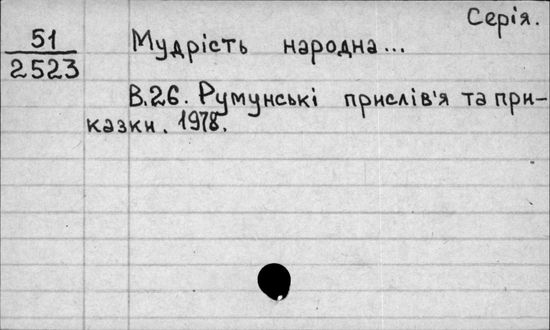 Серія.
51
2523
Мудрість народна...
В.26. Румунські прислів'я та при-
казки. 1978.